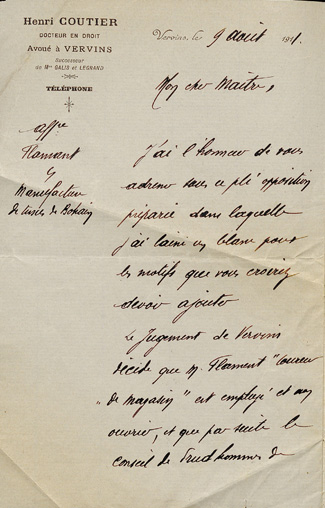 Henri COUTIER
DOCTEUR EN DROIT
Avoué à VERVINS
Successeur
de Mes GALIS et LEGRAND
TÉLÉPHONE
Vervins, le 9 août 191
Mon cher Maître,
affre
Flamant
c/
Manufacture
de tissus de Bohain
J'ai l'honneur de vous
adresser sous ce pli opposition
préparée dans laquelle
j'ai laissé un blanc pour
les motifs que vous croiriez
devoir ajouter
Le Jugement de Vervins
décide que M. Flament "Coureur
"de Magasin" est employé et non
ouvrier, et que par suite le
Conseil de Prudhommes de